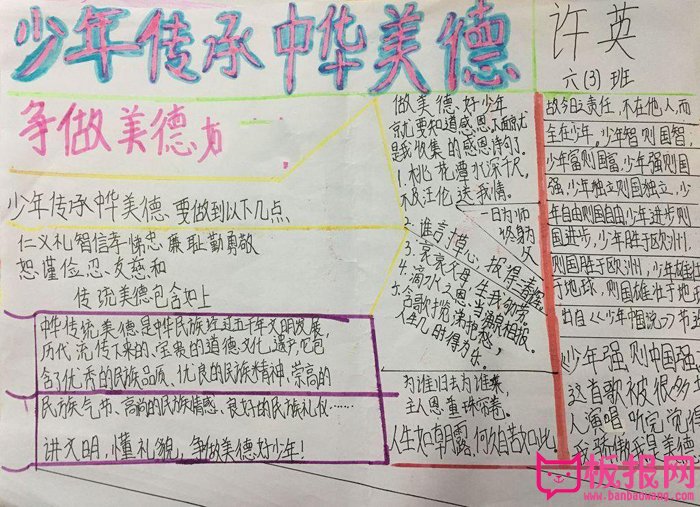 少年传承中华美德
许英
六(3)班
争做美德
少年传承中华美德,要做到以下几点
仁义礼智信孝悌忠廉耻勤勇敬
恕谨俭忍、友慈和
传统美德包含如上
中华传统美德是中华民族经过五千年文明发展,
历代流传下来的、宝贵的道德文化遗产,它包
含了优秀的民族品质、优良的民族精神,崇高的
民族气节、高尚的民族情感、良好的民族礼仪……
讲文明,懂礼貌,争做美德好少年!
做美德好少年
就要知道感恩,下面就
是我收集的感恩诗句了
1.桃花潭水深千尺,
不及汪伦送我情。
一日为师
终身为父
2.谁言寸草心,报得三春晖
3.哀哀父母,生我劬劳
4.滴水之恩,当涌泉相报。
人生几时得为乐。
为谁归去为谁来,
主人恩重珠帘卷。
人生如朝露,何久自苦如此。
故今日之责任,不在他人,而
全在少年。少年智则国智,
少年富则国富,少年强则国
强,少年独立则国独立,少
年自由则国自由,少年进步则
国进步,少年胜于欧洲,
则国胜于欧洲,少年雄
于地球,则国雄于地
出自《少年中国说》节
少年强则中国强
这首歌被很多
人演唱,听完觉得
我骄傲我是美德
板报网
www.banbaowang.com